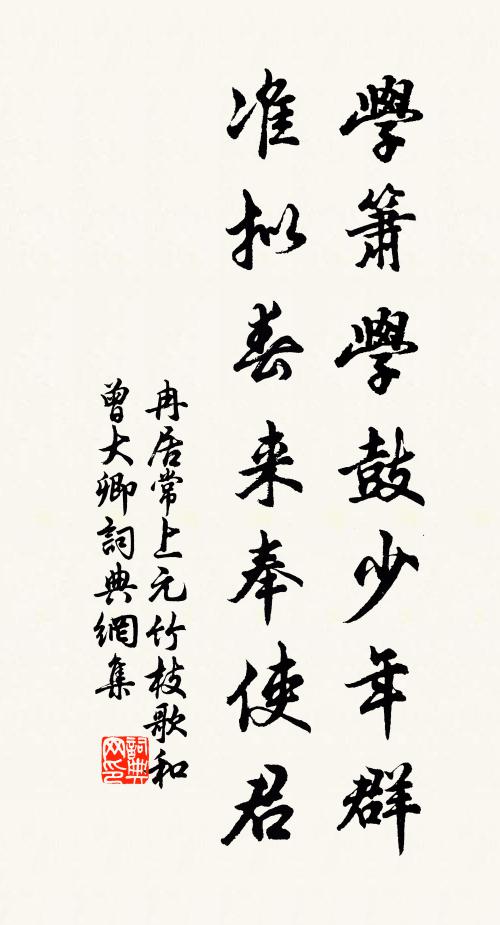 學簫學鼓少年群
准拟春来奉使君
冉居常上元竹枝歌和
曾大卿詞典網集
詞典網印